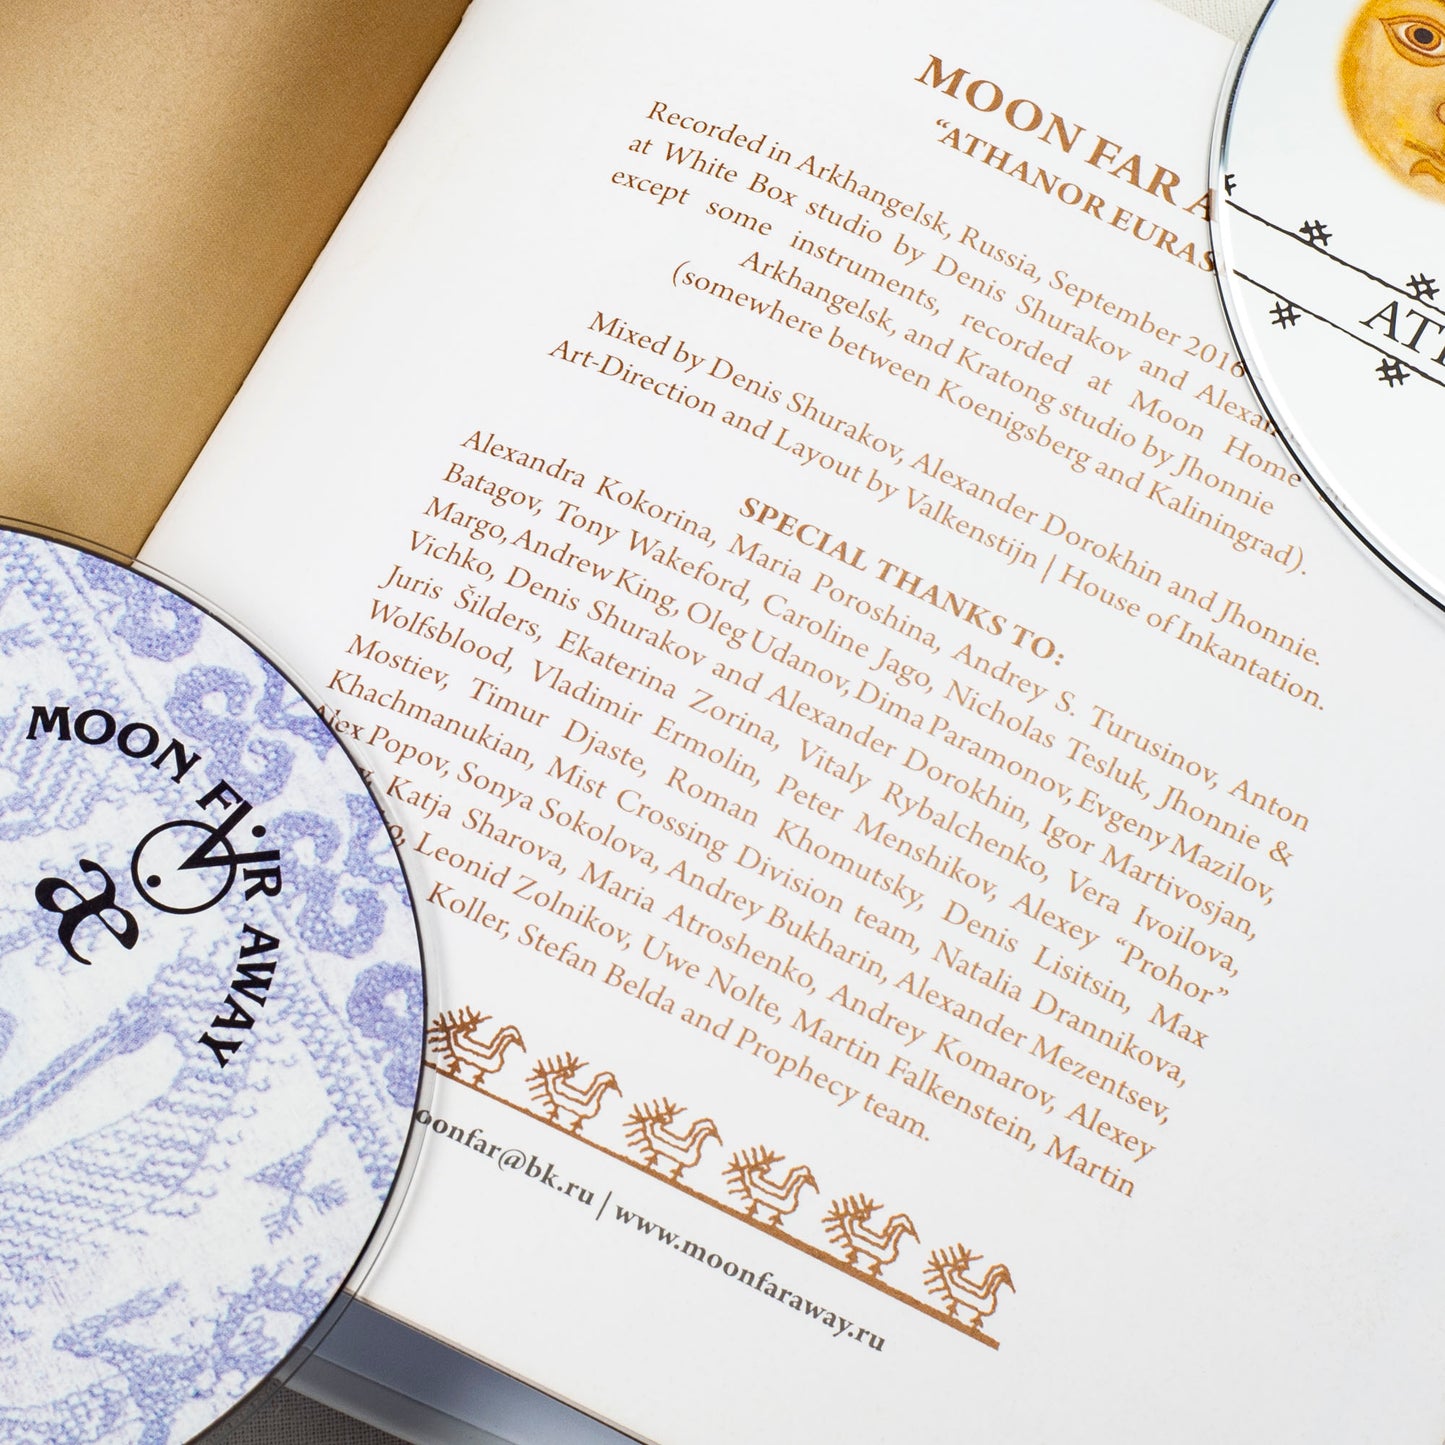 MOON FAR A
“ATHANOR EURAS
Recorded in Arkhangelsk, Russia, September 2016
at White Box studio by Denis Shurakov and Alexan
except some instruments, recorded at Moon Home
Arkhangelsk, and Kratong studio by Jhonnie
(somewhere between Koenigsberg and Kaliningrad).
Mixed by Denis Shurakov, Alexander Dorokhin and Jhonnie.
Art-Direction and Layout by Valkenstijn | House of Inkantation.
SPECIAL THANKS TO:
Alexandra Kokorina, Maria Poroshina, Andrey S. Turusinov, Anton
Batagov, Tony Wakeford, Caroline Jago, Nicholas Tesluk, Jhonnie &
Margo, Andrew King, Oleg Udanov, Dima Paramonov, Evgeny Mazilov,
Vichko, Denis Shurakov and Alexander Dorokhin, Igor Martivosjan,
Juris Šilders, Ekaterina Zorina, Vitaly Rybalchenko, Vera Ivoilova,
Wolfsblood, Vladimir Ermolin, Peter Menshikov, Alexey “Prohor”
Mostiev, Timur Djaste, Roman Khomutsky, Denis Lisitsin, Max
Khachmanukian, Mist Crossing Division team, Natalia Drannikova,
Alex Popov, Sonya Sokolova, Andrey Bukharin, Alexander Mezentsev,
Katja Sharova, Maria Atroshenko, Andrey Komarov, Alexey
Leonid Zolnikov, Uwe Nolte, Martin Falkenstein, Martin
Koller, Stefan Belda and Prophecy team.
oonfar@bk.ru | www.moonfaraway.ru
MOON FAR AWAY
æ
AT